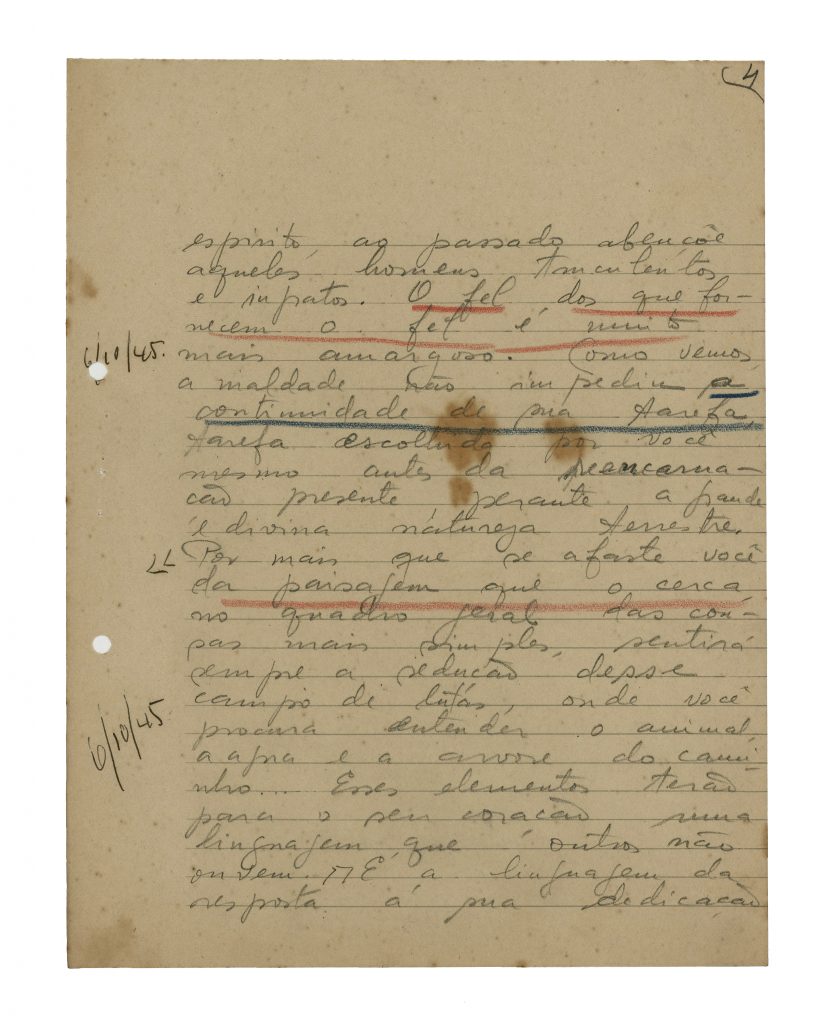 4
espirito, ao passado abençõe
aqueles homens truculentos
e ingratos. O fel dos que for-
necem o fel é muito
6/10/45.
mais amargoso. Como vemos,
a maldade não impediu a
continuidade de sua tarefa,
tarefa escolhida por você
mesmo antes da reencarna-
ção presente perante a grande
e divina natureza terrestre.
Por mais que se afaste você
da paisagem que o cerca
no quadro geral das cou-
sas mais simples, sentirá
sempre a sedução desse
campo de lutas, onde você
6/10/45
procura entender o animal,
a agua e a arvore do cami-
nho... Esses elementos terão
para o seu coração uma
linguagem que outros não
ouvem. É a linguagem da
resposta á sua dedicação